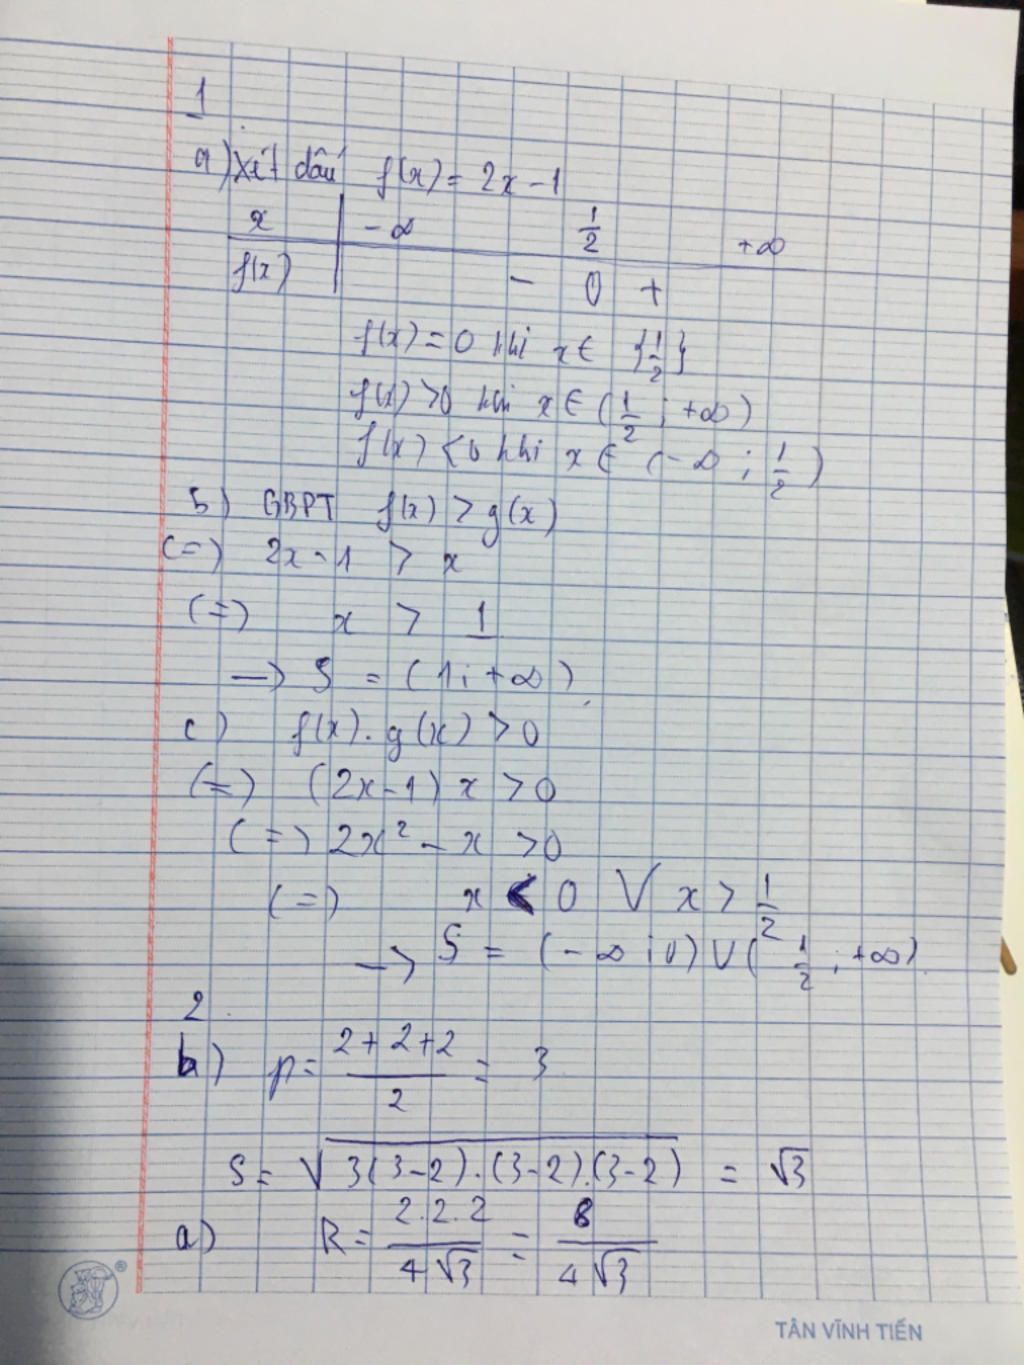 1
a) Xét dấu f(x) = 2x - 1
x -∞ 1/2 +∞
f(x) - 0 +
f(x) = 0 khi x ∈ {1/2}
f(x) > 0 khi x ∈ (1/2 ; +∞)
f(x) < 0 khi x ∈ (-∞ ; 1/2)
b) GBPT f(x) > g(x)
(=) 2x - 1 > x
(=) x > 1
→ S = (1 ; +∞)
c) f(x) . g(x) > 0
(=) (2x - 1) x > 0
(=) 2x² - x > 0
(=) x < 0 V x > 1/2
→ S = (-∞ ; 0) U (1/2 ; +∞)
2
b) p = (2 + 2 + 2)/2 = 3
S = √3(3-2).(3-2).(3-2) = √3
a) R = 2.2.2/4√3 = 8/4√3
®
TÂN VĨNH TIẾN